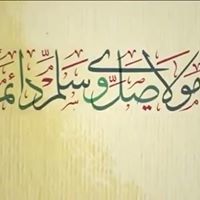 مولاي صلّ وسلّم دائمًا